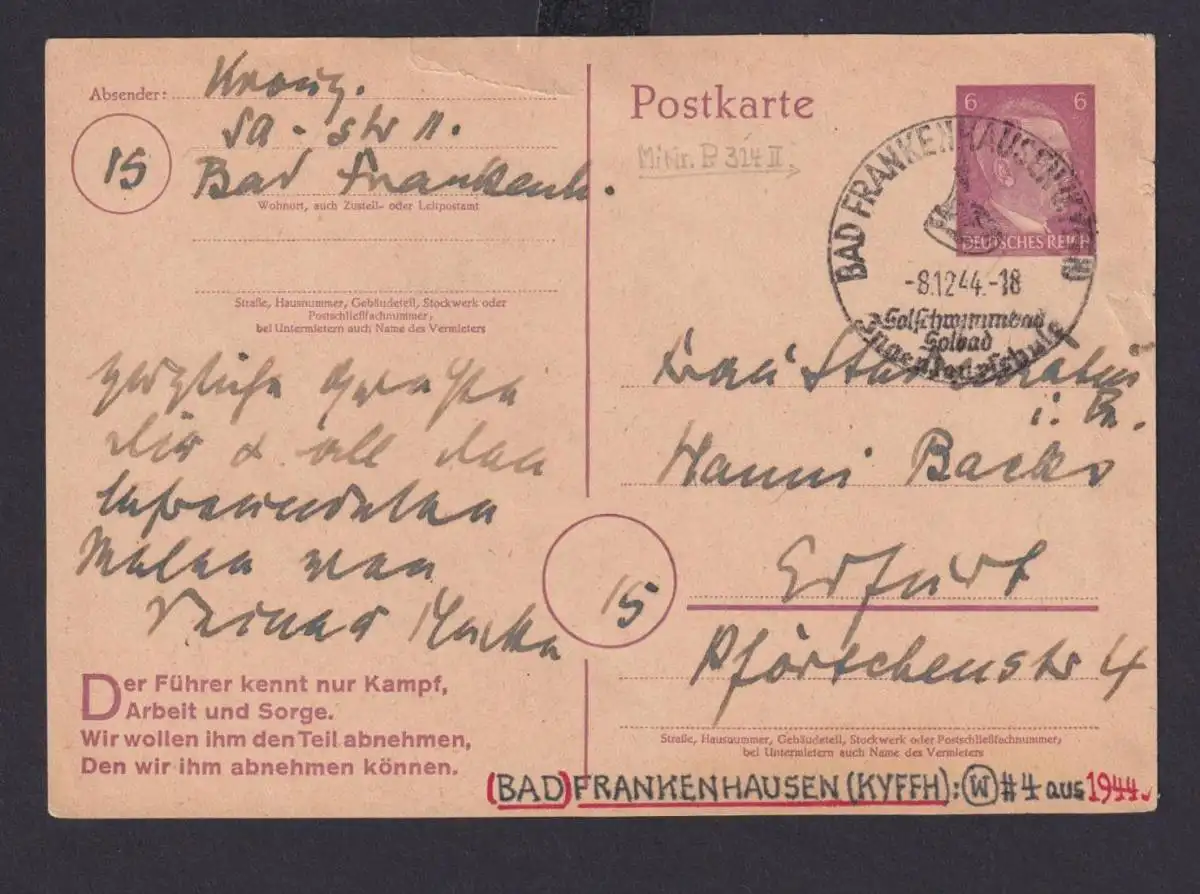 Absender:
Sa-str 11.
15
Bad Frankenh.
Wohnort, auch Zustell- oder Leitpostamt
Straße, Hausnummer, Gebäudeteil, Stockwerk oder
Postschließfachnummer,
bei Untermietern auch Name des Vermieters
Herzliche Grüße
Dir & all den
befreundeten
Malen von
Der Führer kennt nur Kampf,
Arbeit und Sorge.
Wir wollen ihm den Teil abnehmen,
Den wir ihm abnehmen können.
Postkarte
MiNr. P 314 II
6 6
DEUTSCHES REICH
BAD FRANKENHAUSEN (KYFFH)
-8.12.44.-18
Solschwimmbad
Solbad
Ingenieurschule
Frau
Hanni Backs
15
Erfurt
Pförtchenstr 4
Straße, Hausnummer, Gebäudeteil, Stockwerk oder Postschließfachnummer,
bei Untermietern auch Name des Vermieters
(BAD) FRANKENHAUSEN (KYFFH): W #4 aus 1944.